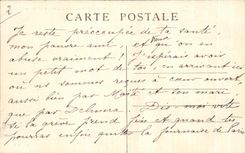 2
CARTE POSTALE
Je reste préoccupée de ta santé,
mon pauvre ami, et qu'on en
abuse vraiment ! J'espérais avoir
un petit mot de toi, en arrivant ici
où nous sommes reçues à cœur ouvert
aussi bien par et son mari,
que par Dis-moi vite
si la grève prend fin et quand tu
pourras enfin quitter la fournaise de